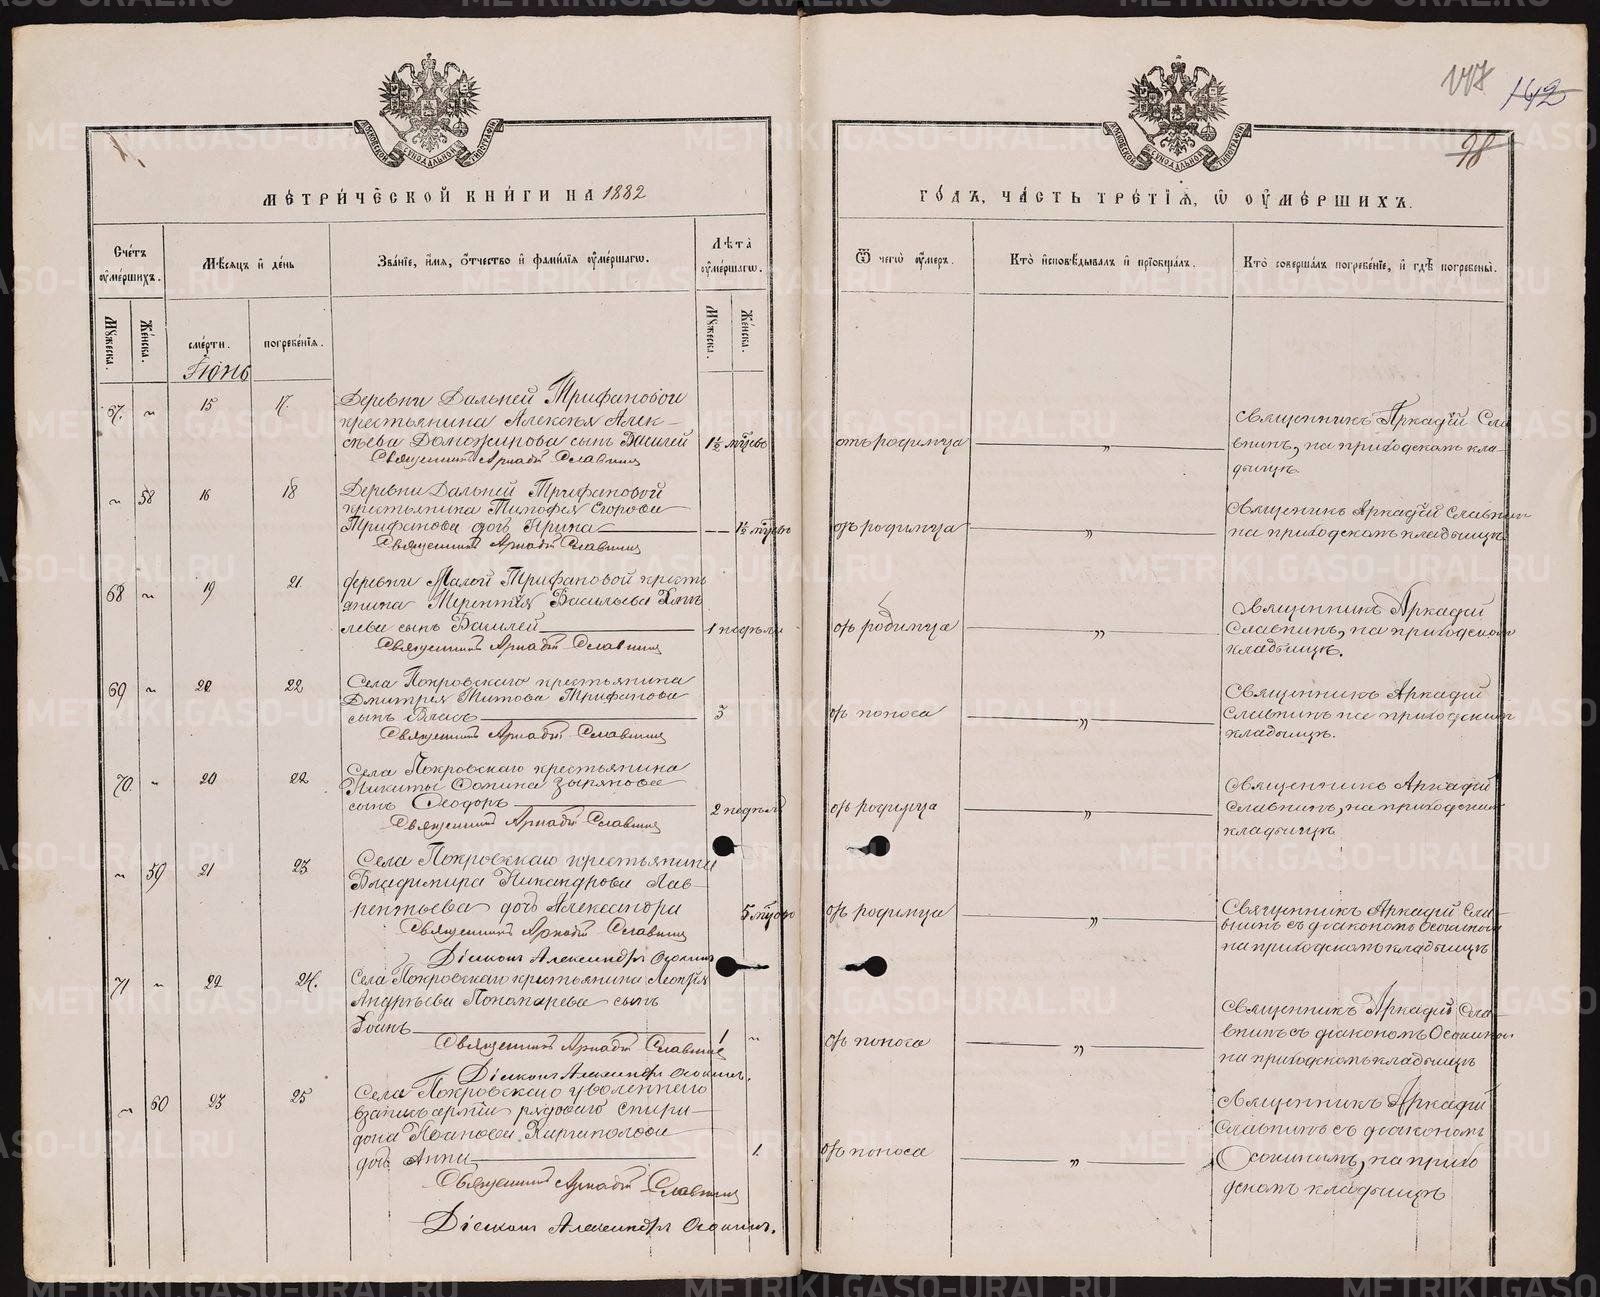 147
142
98
МОСКОВСКОЙ СУНОДАЛЬНОЙ ТИПОГРАФІИ
МОСКОВСКОЙ СУНОДАЛЬНОЙ ТИПОГРАФІИ
МЕТРИЧЕСКОЙ КНИГИ НА 1882
ГОДЪ, ЧАСТЬ ТРЕТІЯ, Ѡ ОУМЕРШИХЪ.
Счетъ оумершихъ.
Мѣсяцъ и день
Званіе, имя, отчество и фамилія оумершагѡ.
Лѣта оумершагѡ.
Ѿ чегѡ оумеръ.
Кто исповѣдывалъ и пріобщалъ.
Кто совершалъ погребеніе, и гдѣ погребены.
Мужеска.
Женска.
смерти.
погребенія.
Мужеска.
Женска.
Іюнь
67. " 15 17.
Деревни Дальней Трифановой
крестьянина Алексѣя Алек-
сѣева Доможирова сынъ Василей
1½ мѣсяцъ
Священникъ Аркадій Славнинъ
отъ родимца
"
Священникъ Аркадій Сла
внинъ, на приходскомъ кла-
дбищѣ
" 58 16 18
Деревни Дальней Трифановой
крестьянина Тимофея Егорова
Трифанова дочь Ирина
1½ мѣсяцъ
Священникъ Аркадій Славнинъ
отъ родимца
"
Священникъ Аркадій Славнинъ
на приходскомъ кладбищѣ
68 " 19 21.
деревни Малой Трифановой кресть
янина Терентія Васильева
лева сынъ Василей
1 недѣли
Священникъ Аркадій Славнинъ
отъ родимца
"
Священникъ Аркадій
Славнинъ, на приходскомъ
кладбищѣ.
69 " 20 22
Села Покровскаго крестьянина
Дмитрія Титова Трифанова
сынъ Власъ
3
Священникъ Аркадій Славнинъ
отъ поноса
"
Священникъ Аркадій
Славнинъ на приходскомъ
кладбищѣ.
70 " 20 22
Села Покровскаго крестьянина
Никиты Зырянова
сынъ Ѳеодоръ
2 недѣли
Священникъ Аркадій Славнинъ
отъ родимца
"
Священникъ Аркадій
Славнинъ, на приходскомъ
кладбищѣ
" 59 21 23
Села Покровскаго крестьянина
Владимира Никандрова Лав-
рентьева дочь Александра
5 мѣсяцъ
Священникъ Аркадій Славнинъ
Діаконъ Александръ Осокинъ
отъ родимца
"
Священникъ Аркадій Сла-
внинъ съ діакономъ Осокинымъ
на приходскомъ кладбищѣ
71 " 22 24.
Села Покровскаго крестьянина Леонтія
Андреева Пономарева сынъ
Іоанъ
1 "
Священникъ Аркадій Славнинъ
Діаконъ Александръ Осокинъ.
отъ поноса
"
Священникъ Аркадій Сла-
внинъ съ діакономъ Осокинымъ
на приходскомъ кладбищѣ
" 60 23 25
Села Покровскаго уволеннаго
взапасъ арміи рядоваго Спири-
дона Иванова Каргаполова
дочь Анна
1.
Священникъ Аркадій Славнинъ
Діаконъ Александръ Осокинъ.
отъ поноса
"
Священникъ Аркадій
Славнинъ съ діакономъ
Осокинымъ, на прихо
дскомъ кладбищѣ
METRIKI.GASO-URAL.RU